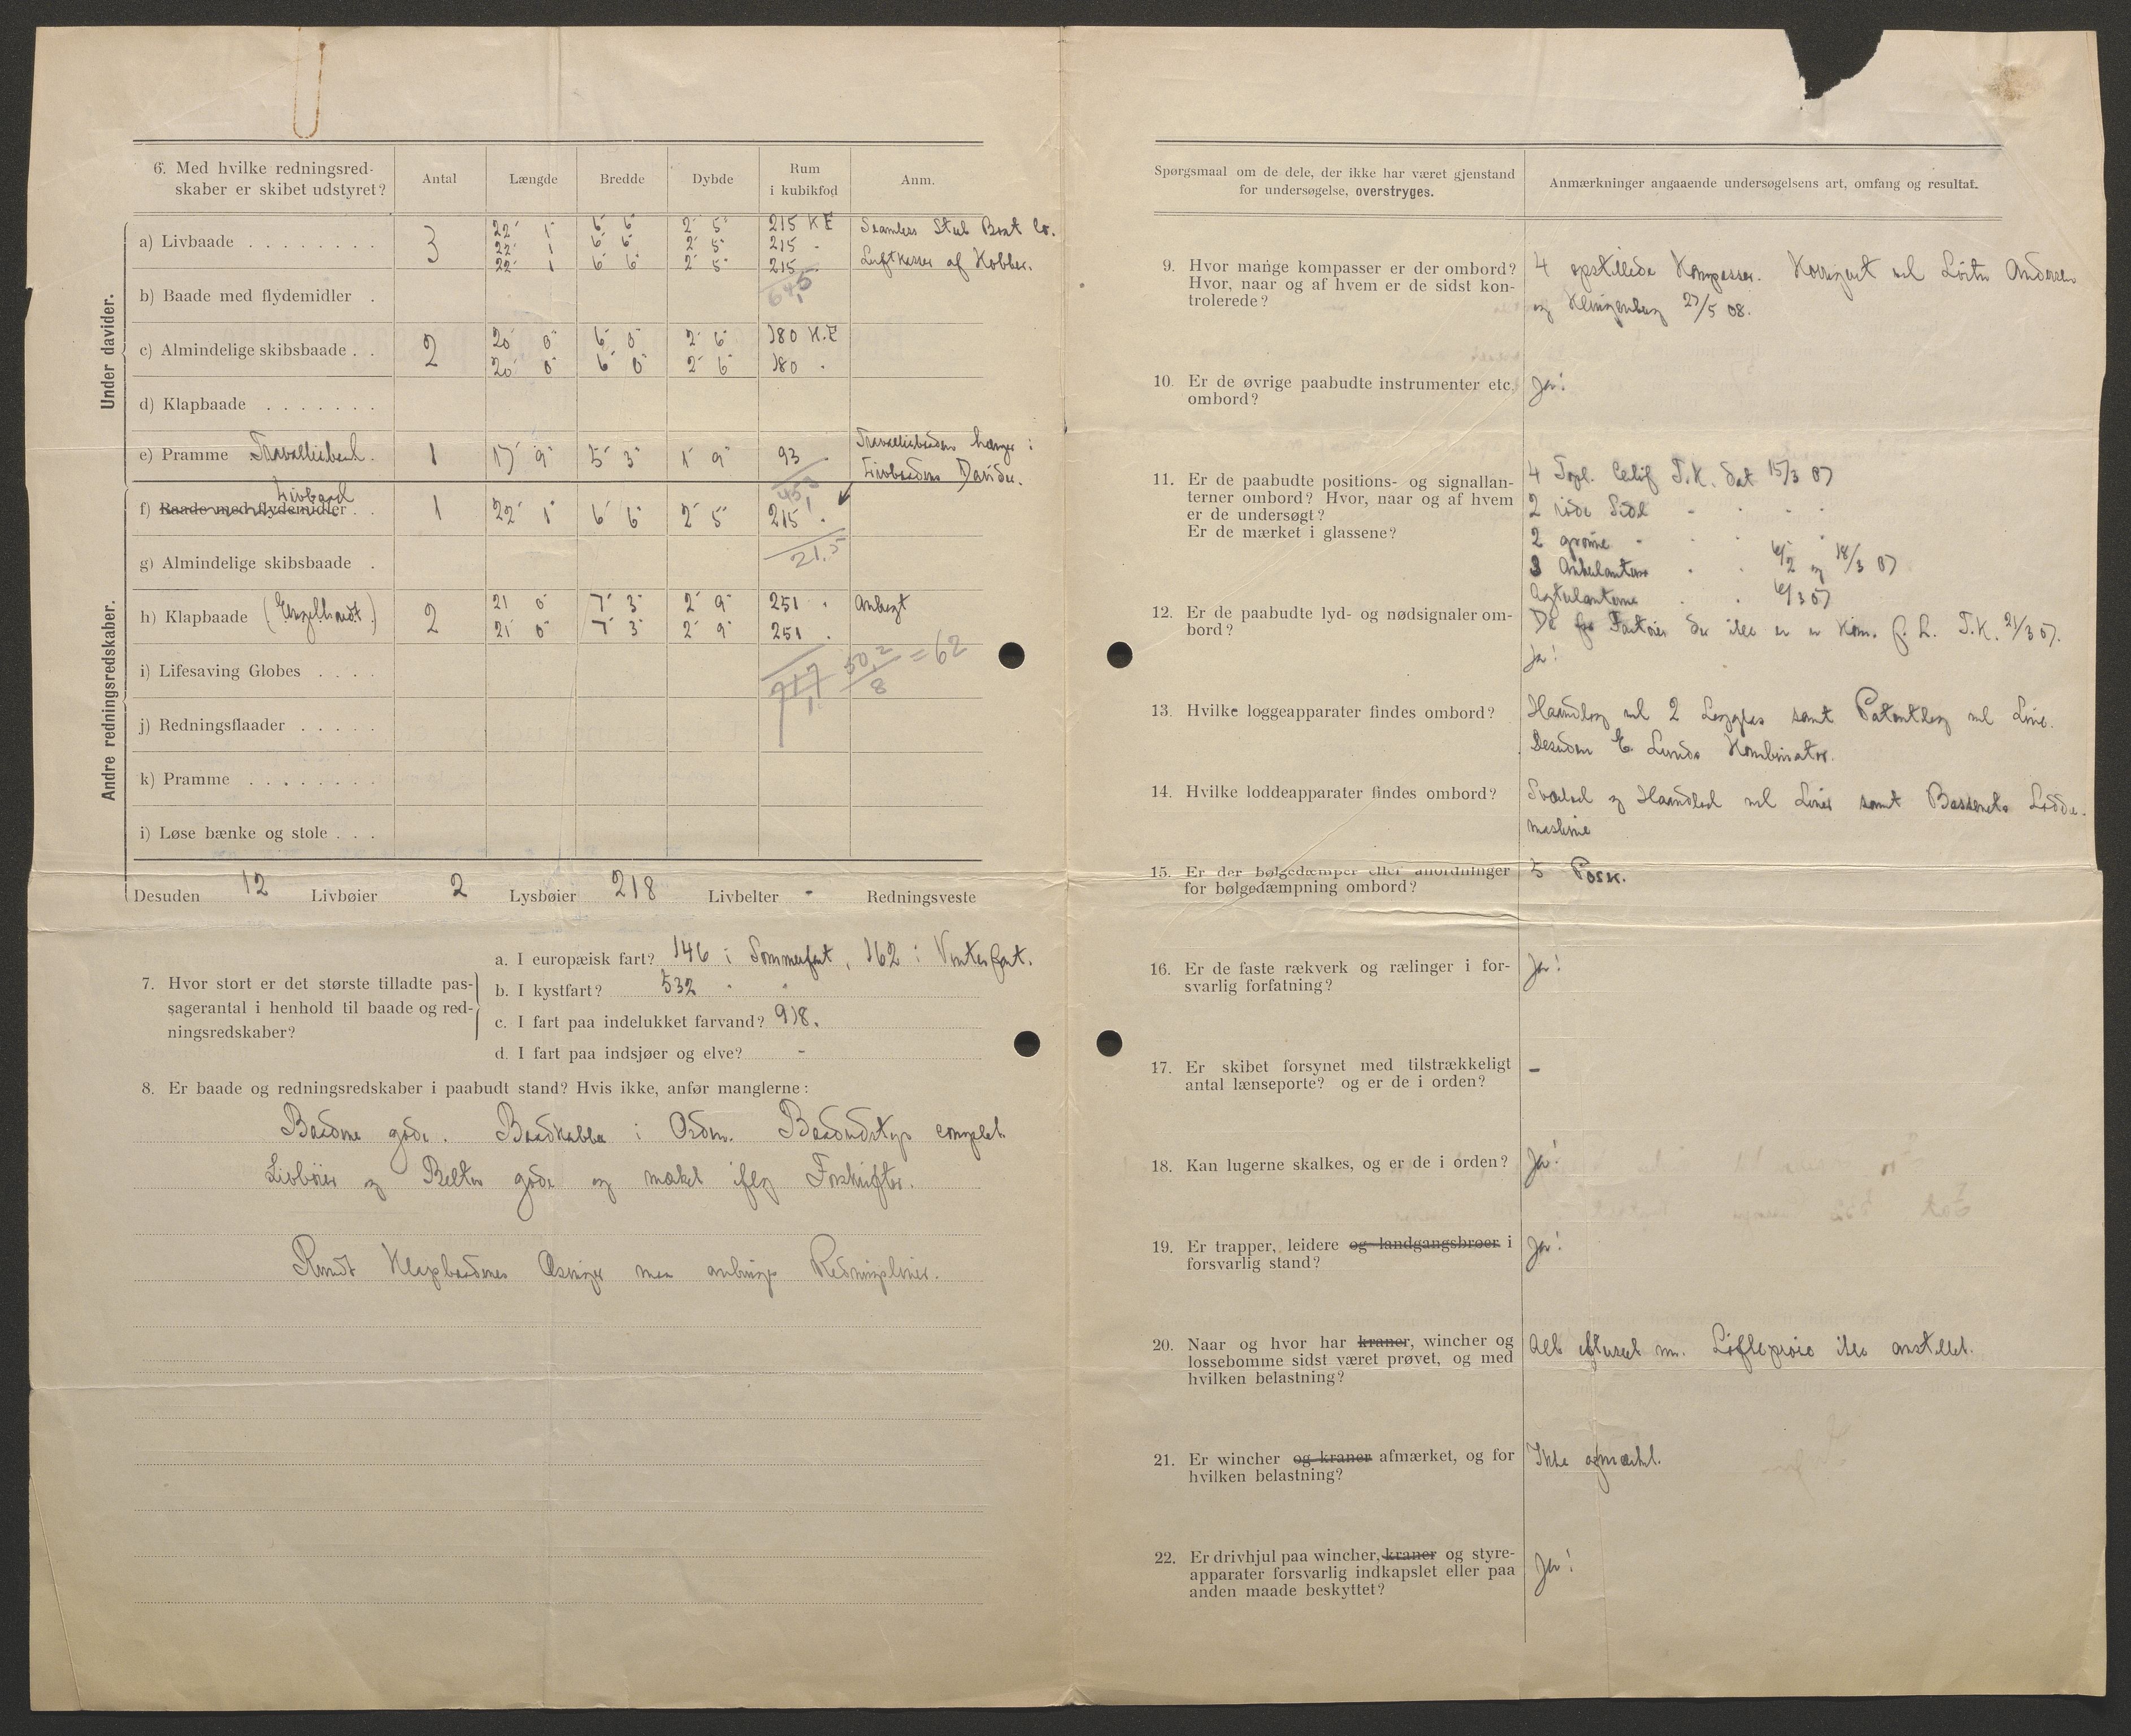 6. Med hvilke redningsred-
skaber er skibet udstyret?
Antal
Længde
Bredde
Dybde
Rum
i kubikfod
Anm.
Under davider.
a) Livbaade . . . . . . . .
3
22' 1" 6' 6" 2' 5" 215 KE
22' 1 6' 6" 2' 5" 215 -
22' 1 6' 6" 2' 5" 215 -
Seamless Steel Boat Co.
Luftkasser af Kobber.
645
b) Baade med flydemidler .
c) Almindelige skibsbaade . .
2
20' 0" 6' 0" 2' 6" 180 K.E
20' 0" 6' 0" 2' 6" 180 .
d) Klapbaade . . . . . . .
e) Pramme Travalliebaad.
1 17' 9" 5' 3" 1' 9" 93
Travalliebaaden hænger i
Livbaadens Davider.
Andre redningsredskaber.
Livbaad
f) Baade med flydemidler . .
1 22' 1" 6' 6" 2' 5" 215 .
21,5
g) Almindelige skibsbaade .
h) Klapbaade (Engelhardt.)
2
21 0" 7' 3" 2' 9" 251 .
21' 0" 7' 3" 2' 9" 251 .
50,2
8
= 62
i) Lifesaving Globes . . . .
j) Redningsflaader . . . . .
k) Pramme . . . . . . . .
i) Løse bænke og stole . . .
Desuden 12 Livbøier 2 Lysbøier 218 Livbelter - Redningsveste
7. Hvor stort er det største tilladte pas-
sagerantal i henhold til baade og red-
ningsredskaber?
a. I europæisk fart? 146 i Sommerfart, 162 i Vinterfart.
b. I kystfart? 532 " "
c. I fart paa indelukket farvand? 918.
d. I fart paa indsjøer og elve? -
8. Er baade og redningsredskaber i paabudt stand? Hvis ikke, anfør manglerne:
Baadene gode. Baadkabber i Orden. Baadudstyr complet.
Livbøier og Belter gode og mærket iflg Forskrifter.
Rundt Klapbaadenes Æsinger maa anbringes Redningsliner.
Spørgsmaal om de dele, der ikke har været gjenstand
for undersøgelse, overstryges.
Anmærkninger angaaende undersøgelsens art, omfang og resultat.
9. Hvor mange kompasser er der ombord?
Hvor, naar og af hvem er de sidst kon-
trolerede?
4 opstillede Kompasser. Korrigeret ved Løitn Andersen
og Klingenberg 23/5 08.
10. Er de øvrige paabudte instrumenter etc.
ombord?
Ja!
11. Er de paabudte positions- og signallan-
terner ombord? Hvor, naar og af hvem
er de undersøgt?
Er de mærket i glassene?
4 Topl. Certif T.K. dat 15/3 07
2 røde Sidel - - - -
2 grønne - - - -
3 Ankerlanterne . . 6/2 og 18/3 07
Agterlanterne . . 6/3 07
12. Er de paabudte lyd- og nødsignaler om-
bord?
Ja!
13. Hvilke loggeapparater findes ombord?
Haandlog ved 2 Logglas samt Patentlog ved Line.
Desuden E. Lunds Kombinator.
14. Hvilke loddeapparater findes ombord?
Svælod og Haandlod ved Liner samt Bassnets Lodde-
maskine
15. Er der bølgedæmper eller anordninger
for bølgedæmpning ombord?
5 Posr.
16. Er de faste rækverk og rælinger i for-
svarlig forfatning?
Ja!
17. Er skibet forsynet med tilstrækkeligt
antal lænseporte? og er de i orden?
-
18. Kan lugerne skalkes, og er de i orden?
Ja!
19. Er trapper, leidere og landgangsbroer i
forsvarlig stand?
Ja!
20. Naar og hvor har kraner, wincher og
lossebomme sidst været prøvet, og med
hvilken belastning?
Alt efterseet nu. Løfteprøve ikke anstillet.
21. Er wincher og kraner afmærket, og for
hvilken belastning?
Ikke afmærket.
22. Er drivhjul paa wincher, kraner og styre-
apparater forsvarlig indkapslet eller paa
anden maade beskyttet?
Ja!